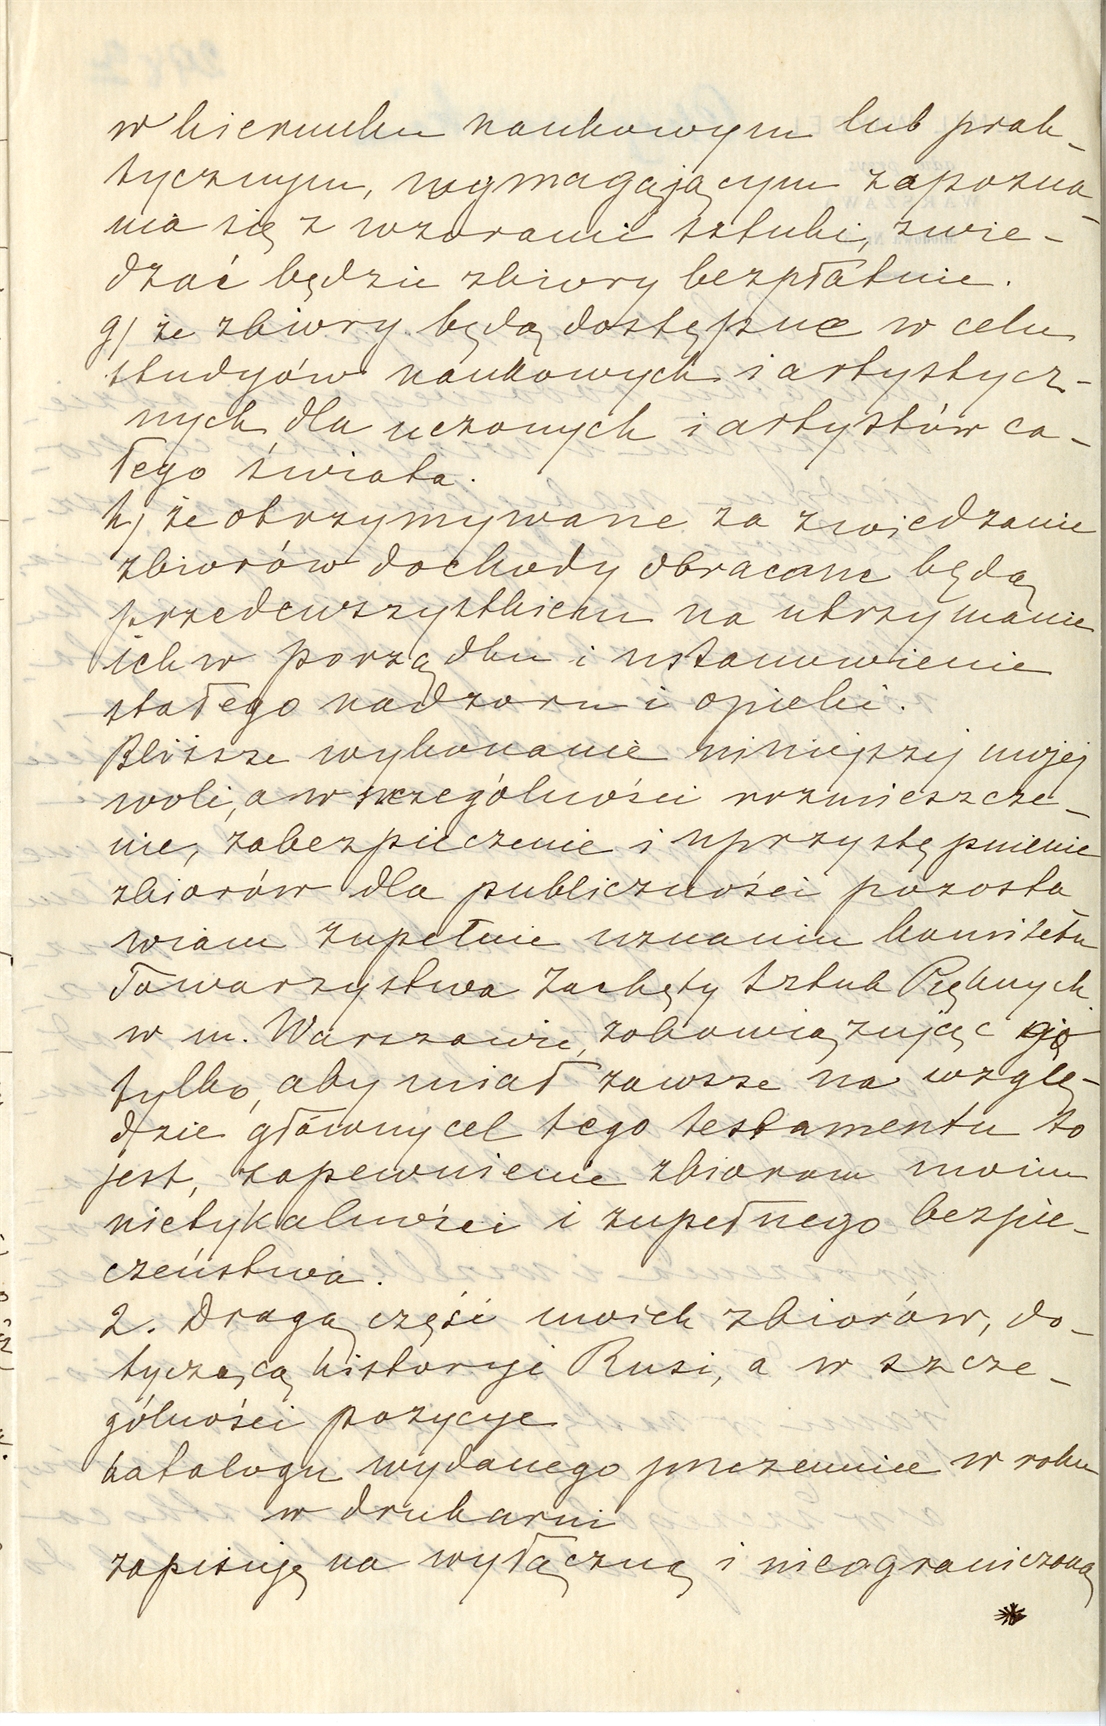 w kierunku naukowym lub prak-
tycznym, wymagającym zapozna-
nia się z wzorami sztuki, zwie-
dzać będzie zbiory bezpłatnie.
g) że zbiory będą dostępne w celu
studyów naukowych i artystycz-
nych dla uczonych i artystów ca-
łego świata.
h) że otrzymywane za zwiedzanie
zbiorów dochody obracane będą
przedewszystkiem na utrzymanie
ich w porządku i ustanowienie
stałego nadzoru i opieki.
Bliższe wykonanie niniejszej mojej
woli, a w szczególności rozmieszcze-
nie, zabezpieczenie i uprzystępnienie
zbiorów dla publiczności pozosta
wiam zupełnie uznaniu komitetu
Towarzystwa Zachęty Sztuk Pięknych
w m. Warszawie, zobowiązując go
tylko, aby miał zawsze na wzglę-
dzie główny cel tego testamentu to
jest, zapewnienie zbiorom moim
nietykalności i zupełnego bezpie-
czeństwa.
2. Drugą część moich zbiorów, do-
tyczącą historyi Rusi, a w szcze-
gólności pozycye
katalogu wydanego przezemnie w roku
w drukarni
zapisuję na wyłączną i nieograniczoną